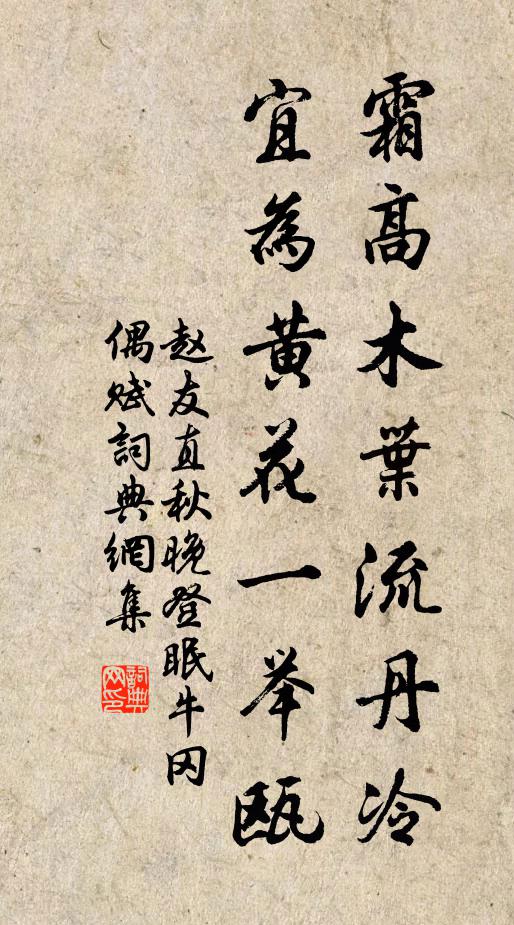 霜高木葉流丹冷
宜為黄花一举瓯
赵友直秋晚登眠牛冈
偶赋詞典網集
詞典
网印